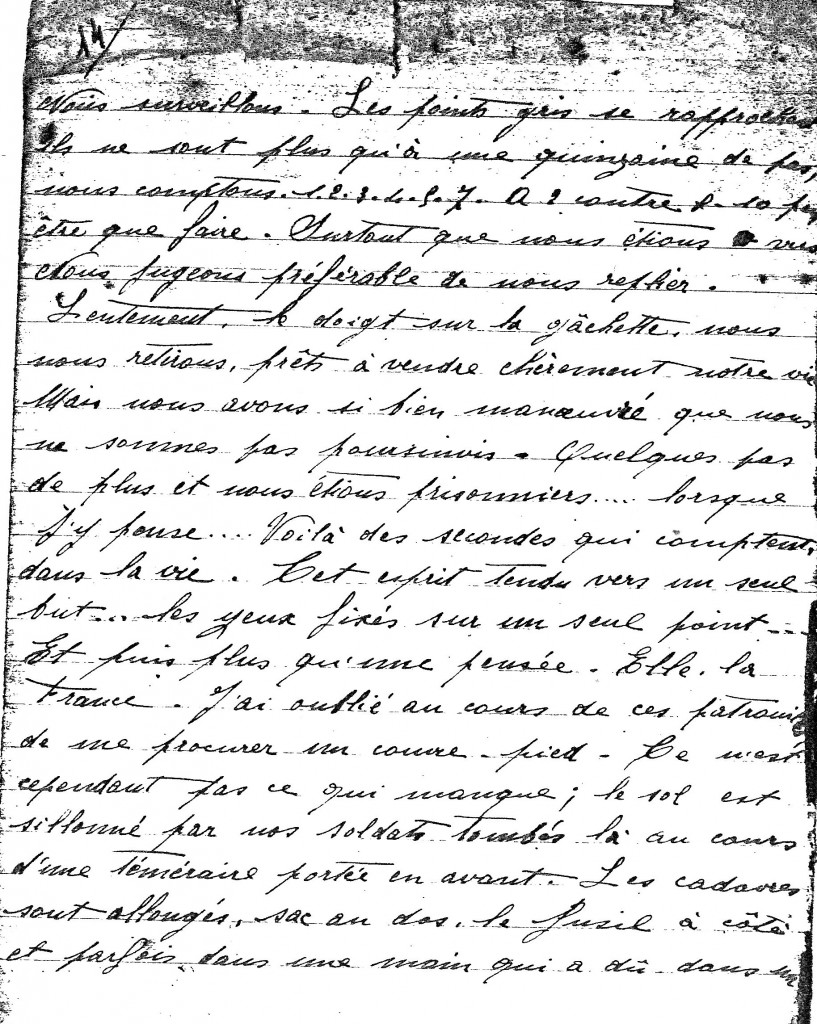 14/
Nous surveillons. Les points gris se rapprochent
ils ne sont plus qu'à une quinzaine de pas,
nous comptons. 1.2.3.4.5.7. A 2 contre 8-10
être que faire. Surtout que nous étions
Nous jugeons préférable de nous replier.
Lentement, le doigt sur la gâchette, nous
nous retirons, prêts à vendre chèrement notre vie
Mais nous avons si bien manœuvré que nous
ne sommes pas poursuivis - Quelques pas
de plus et nous étions prisonniers.... lorsque
j'y pense.... Voilà des secondes qui comptent
dans la vie. Cet esprit tendu vers un seul
but... les yeux fixés sur un seul point...
Et puis plus qu'une pensée - Elle, la
France. J'ai oublié au cours de ces
de me procurer un couvre-pied - Ce n'est
cependant pas ce qui manque; le sol est
sillonné par nos soldats tombés là au cours
d'une téméraire portée en avant. Les cadavres
sont allongés, sac au dos, le fusil à côté
et parfois dans une main qui a dû dans un